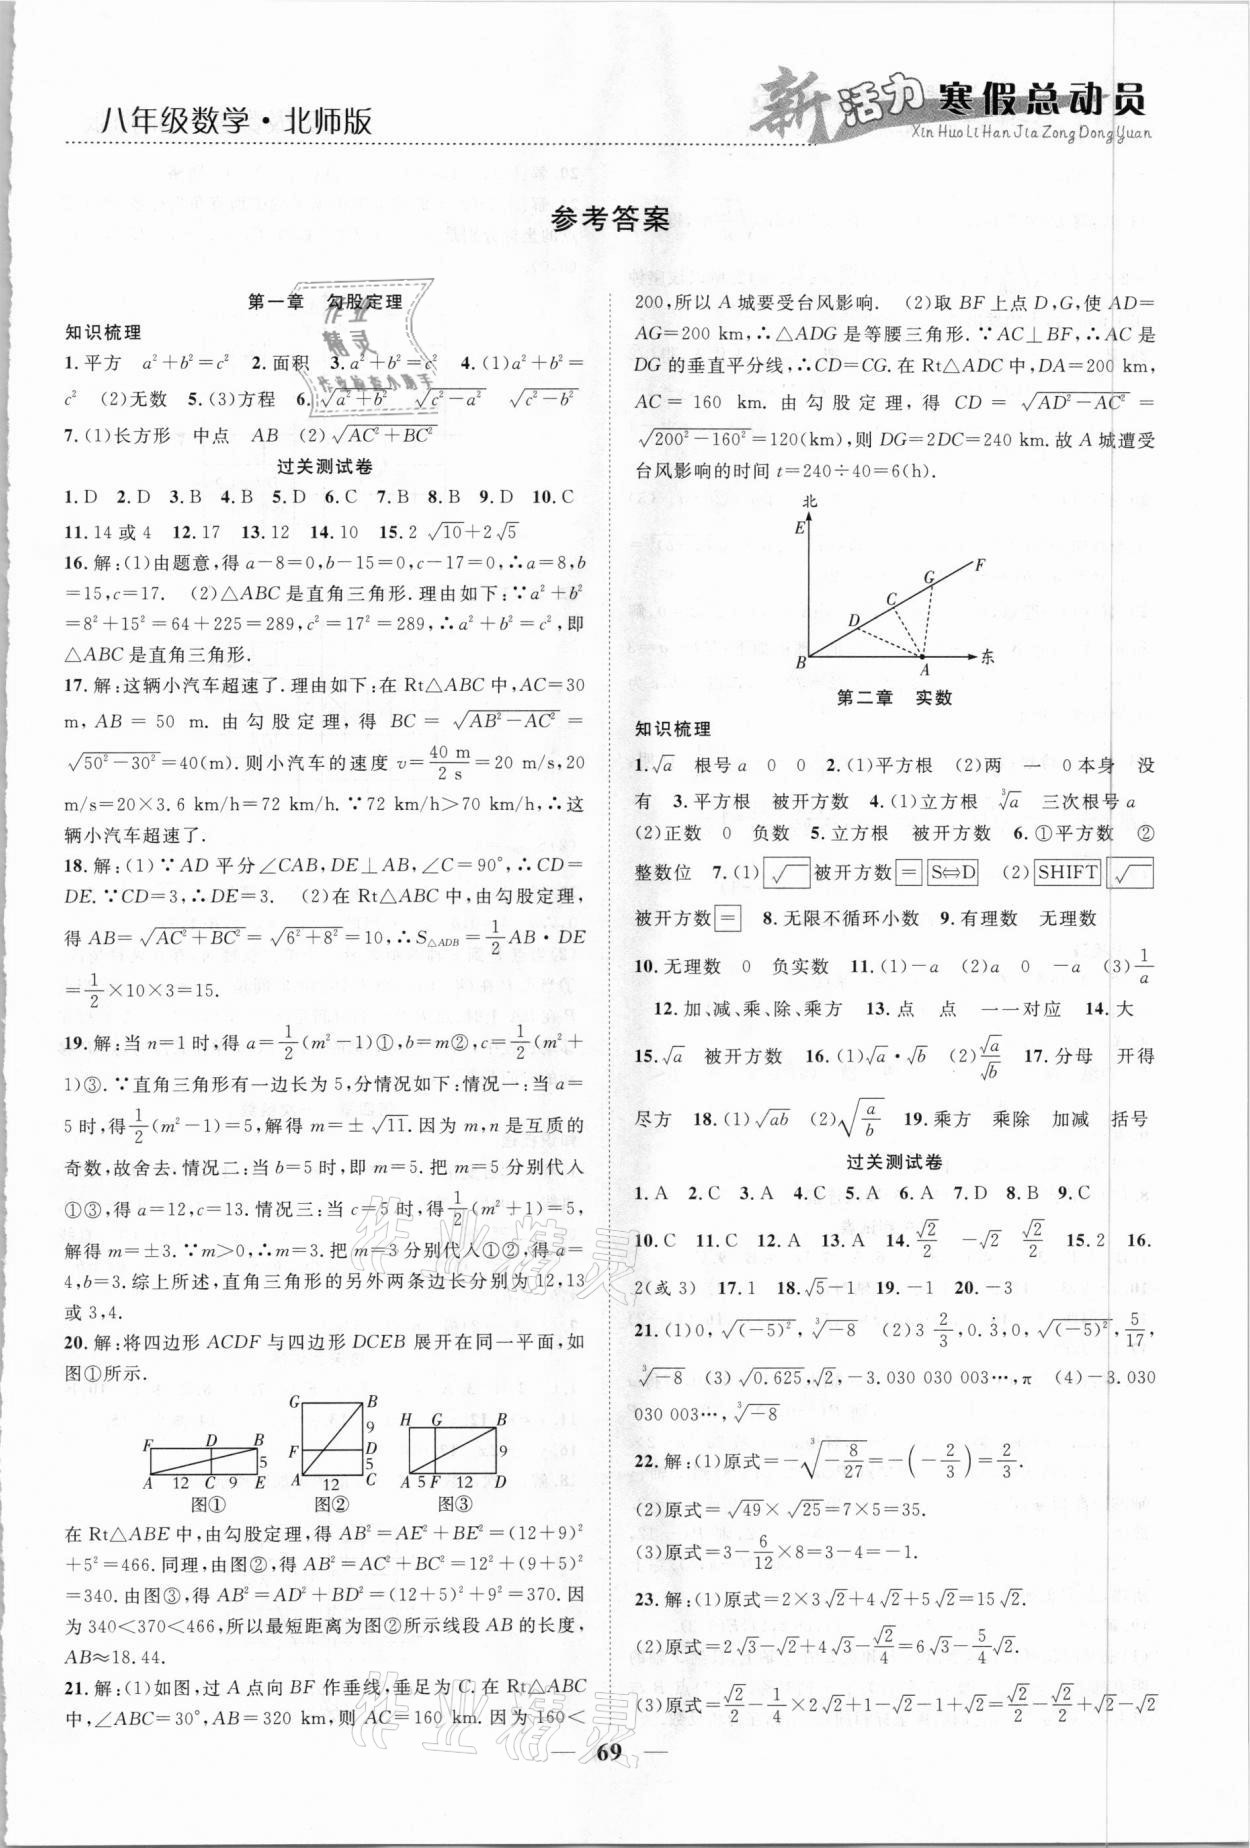 八年级数学·北师版
新活力 寒假总动员
Xin Huo Li Han Jia Zong Dong Yuan
参考答案
第一章 勾股定理
知识梳理
1.平方 a²+b²=c² 2.面积 3.a²+b²=c² 4.(1)a²+b²=
c² (2)无数 5.(3)方程 6.√(a²+b²) √(c²-a²) √(c²-b²)
7.(1)长方形 中点 AB (2)√(AC²+BC²)
过关测试卷
1.D 2.D 3.B 4.B 5.D 6.C 7.B 8.B 9.D 10.C
11.14或4 12.17 13.12 14.10 15.2√10+2√5
16.解:(1)由题意,得a-8=0,b-15=0,c-17=0,∴a=8,b
=15,c=17. (2)△ABC是直角三角形.理由如下:∵a²+b²
=8²+15²=64+225=289,c²=17²=289,∴a²+b²=c²,即
△ABC是直角三角形.
17.解:这辆小汽车超速了.理由如下:在Rt△ABC中,AC=30
m,AB=50 m.由勾股定理,得BC=√(AB²-AC²)=
√(50²-30²)=40(m).则小汽车的速度v=40 m/2 s=20 m/s,20
m/s=20×3.6 km/h=72 km/h.∵72 km/h>70 km/h,∴这
辆小汽车超速了.
18.解:(1)∵AD平分∠CAB,DE⊥AB,∠C=90°,∴CD=
DE.∵CD=3,∴DE=3. (2)在Rt△ABC中,由勾股定理,
得AB=√(AC²+BC²)=√(6²+8²)=10,∴S△ADB=1/2AB·DE
=1/2×10×3=15.
19.解:当n=1时,得a=1/2(m²-1)①,b=m②,c=1/2(m²+
1)③.∵直角三角形有一边长为5,分情况如下:情况一:当a=
5时,得1/2(m²-1)=5,解得m=±√11.因为m,n是互质的
奇数,故舍去.情况二:当b=5时,即m=5.把m=5分别代入
①③,得a=12,c=13.情况三:当c=5时,得1/2(m²+1)=5,
解得m=±3.∵m>0,∴m=3.把m=3分别代入①②,得a=
4,b=3.综上所述,直角三角形的另外两条边长分别为12,13
或3,4.
20.解:将四边形ACDF与四边形DCEB展开在同一平面,如
图①所示.
F D B 5 A 12 C 9 E
图①
G B 9 F D 5 A 12 C
图②
H G B 9 A 5 F 12 D
图③
在Rt△ABE中,由勾股定理,得AB²=AE²+BE²=(12+9)²
+5²=466.同理,由图②,得AB²=AC²+BC²=12²+(9+5)²
=340.由图③,得AB²=AD²+BD²=(12+5)²+9²=370.因
为340<370<466,所以最短距离为图②所示线段AB的长度,
AB≈18.44.
21.解:(1)如图,过A点向BF作垂线,垂足为C.在Rt△ABC
中,∠ABC=30°,AB=320 km,则AC=160 km.因为160<
200,所以A城要受台风影响. (2)取BF上点D,G,使AD=
AG=200 km,∴△ADG是等腰三角形.∵AC⊥BF,∴AC是
DG的垂直平分线,∴CD=CG.在Rt△ADC中,DA=200 km,
AC=160 km.由勾股定理,得CD=√(AD²-AC²)=
√(200²-160²)=120(km),则DG=2DC=240 km.故A城遭受
台风影响的时间t=240÷40=6(h).
北
E
F
G
C
D
B
A
东
第二章 实数
知识梳理
1.√a 根号a 0 0 2.(1)平方根 (2)两 一 0本身 没
有 3.平方根 被开方数 4.(1)立方根 ³√a 三次根号a
(2)正数 0 负数 5.立方根 被开方数 6.①平方数 ②
整数位 7.(1)√ 被开方数 = S⇔D (2)SHIFT √
被开方数 = 8.无限不循环小数 9.有理数 无理数
10.无理数 0 负实数 11.(1)-a (2)a 0 -a (3)1/a
12.加、减、乘、除、乘方 13.点 点 一一对应 14.大
15.√a 被开方数 16.(1)√a·√b (2)√a/√b 17.分母 开得
尽方 18.(1)√ab (2)√(a/b) 19.乘方 乘除 加减 括号
过关测试卷
1.A 2.C 3.A 4.C 5.A 6.A 7.D 8.B 9.C
10.C 11.C 12.A 13.A 14.√2/2 -√2 √2/2 15.2 16.
2(或3) 17.1 18.√5-1 19.-1 20.-3
21.(1)0,√(-5)²,³√-8 (2)3 2/3,0.3̇,0,√(-5)²,5/17,
³√-8 (3)√0.625,√2,-3.030 030 003…,π (4)-3.030
030 003…,³√-8
22.解:(1)原式=-³√(-8/27)=-(-2/3)=2/3.
(2)原式=√49×√25=7×5=35.
(3)原式=3-6/12×8=3-4=-1.
23.解:(1)原式=2×3√2+4√2+5√2=15√2.
(2)原式=2√3-√2+4√3-√2/4=6√3-5/4√2.
(3)原式=√2/2-1/4×2√2+1-√2-1+√2=√2/2-√2/2+√2-√2
— 69 —
作业精灵
作业精灵
作业
精灵
作业检查小助手